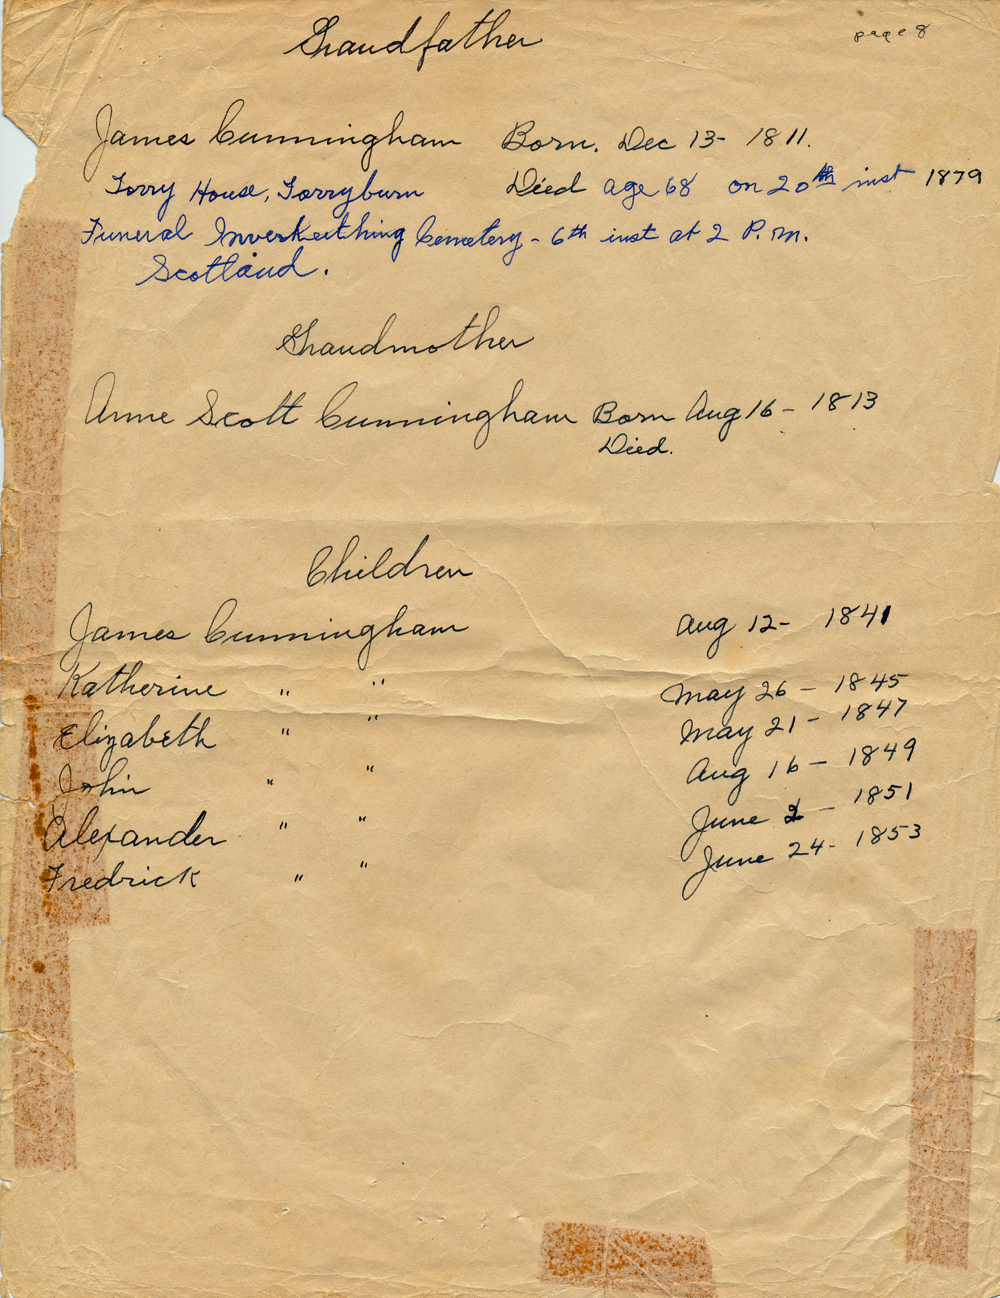 page 8
Grandfather
James Cunningham Born. Dec 13- 1811.
Torry House, Torryburn Died age 68 on 20th inst 1879
Funeral Inverkeithing Cemetery - 6th inst at 2 P.m.
Scotland.
Grandmother
Anne Scott Cunningham Born Aug 16- 1813
Died.
Children
James Cunningham Aug 12- 1841
Katherine " " May 26- 1845
Elizabeth " " May 21- 1847
John " " Aug 16- 1849
Alexander " " June 2- 1851
Fredrick " " June 24- 1853